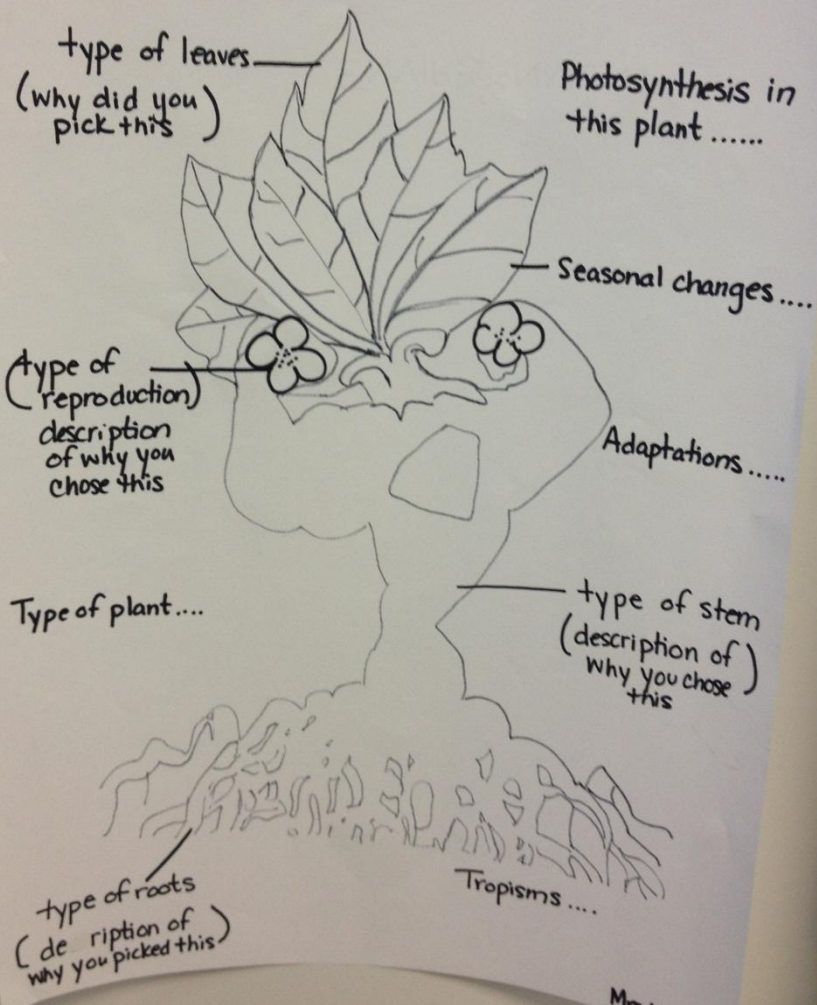 type of leaves
(why did you
pick this)
Photosynthesis in
this plant ......
Seasonal changes ....
(type of
reproduction)
description
of why you
chose this
Adaptations .....
Type of plant ....
type of stem
(description of
why you chose
this)
type of roots
(de ription of
why you picked this)
Tropisms ....